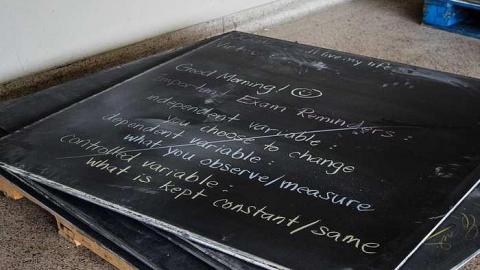 I live my life
Good Morning! ☺
Important Exam Reminders:
independent variable:
you choose to change
dependent variable:
what you observe/measure
controlled variable:
what is kept constant/same